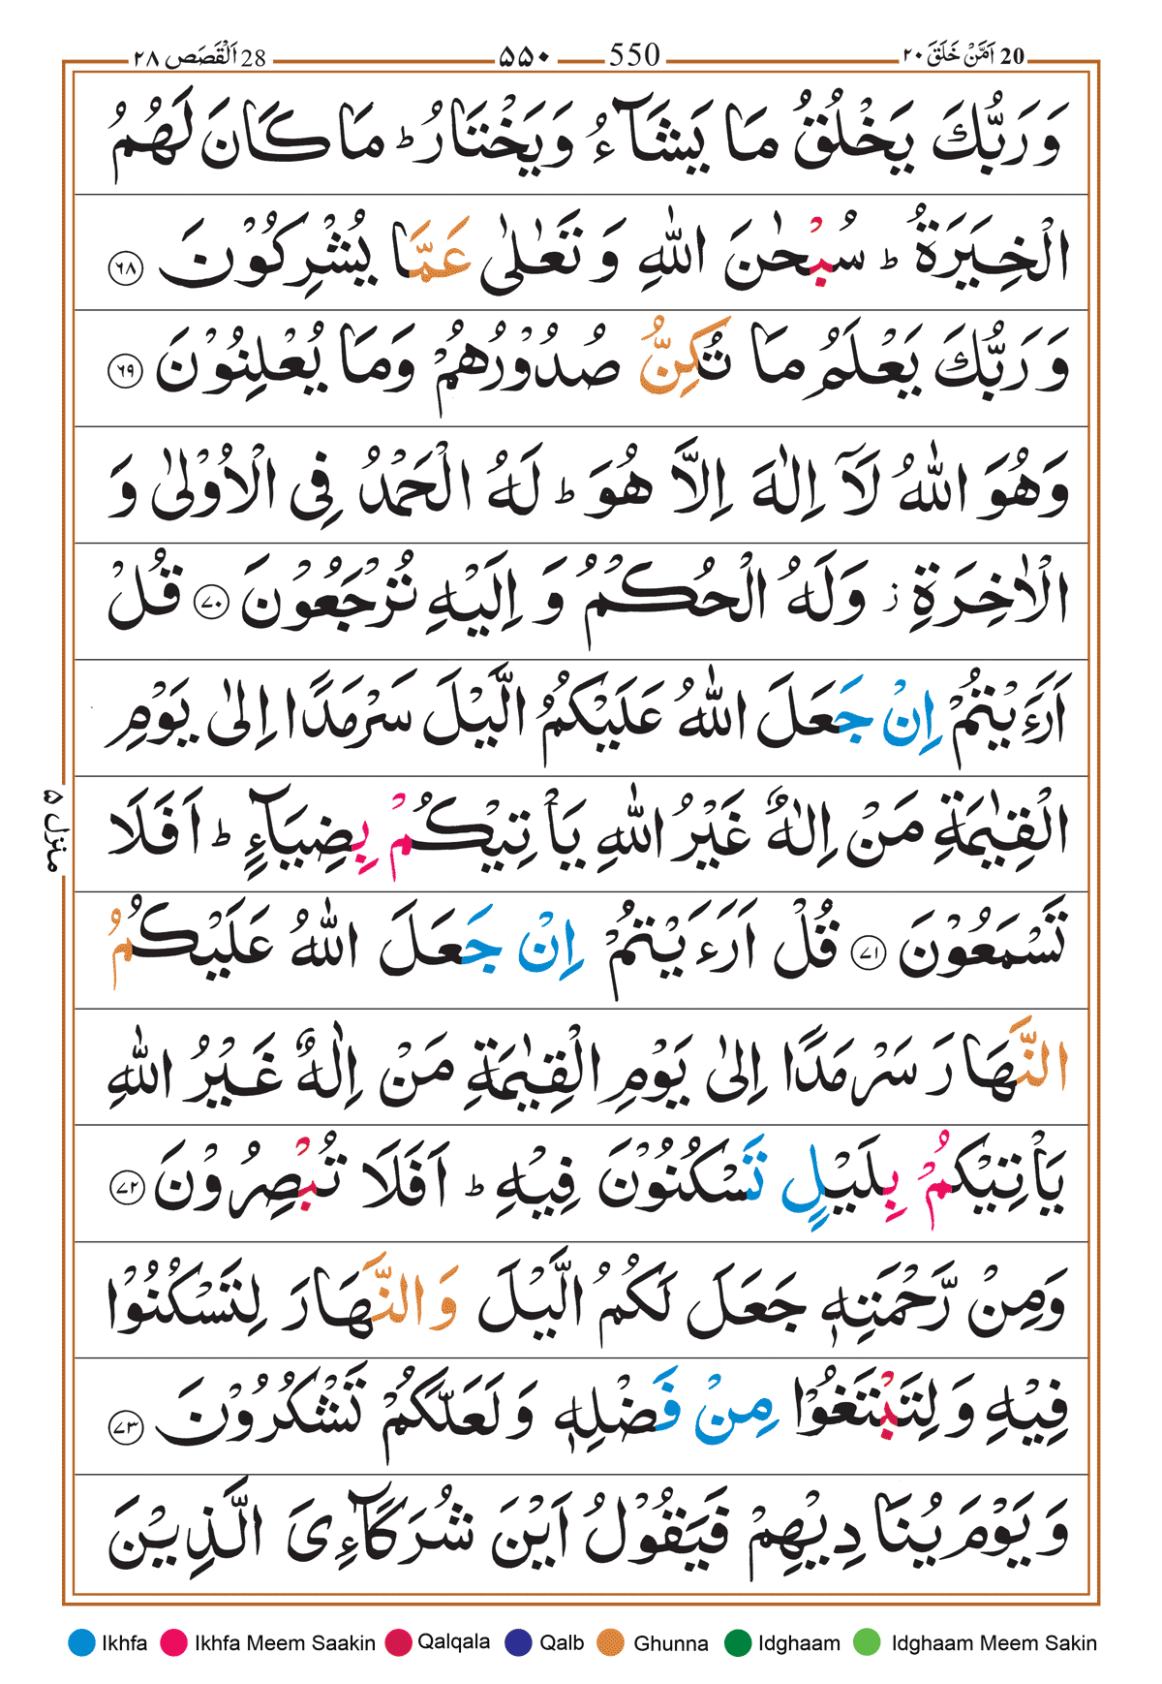 اَلْقَصَص ٢٨ 28 ۵۵۰ 550 اَمَّنْ خَلَقَ ٢٠ 20
وَرَبُّكَ يَخْلُقُ مَا يَشَآءُ وَيَخْتَارُ ؕ مَا كَانَ لَهُمُ
الْخِيَرَةُ ؕ سُبْحٰنَ اللّٰهِ وَ تَعٰلٰى عَمَّا يُشْرِكُوْنَ ﴿۶۸﴾
وَرَبُّكَ يَعْلَمُ مَا تُكِنُّ صُدُوْرُهُمْ وَمَا يُعْلِنُوْنَ ﴿۶۹﴾
وَهُوَ اللّٰهُ لَاۤ اِلٰهَ اِلَّا هُوَ ؕ لَهُ الْحَمْدُ فِى الْاُوْلٰى وَ
الْاٰخِرَةِ ز وَلَهُ الْحُكْمُ وَ اِلَيْهِ تُرْجَعُوْنَ ﴿۷۰﴾ قُلْ
اَرَءَيْتُمْ اِنْ جَعَلَ اللّٰهُ عَلَيْكُمُ الَّيْلَ سَرْمَدًا اِلٰى يَوْمِ
الْقِيٰمَةِ مَنْ اِلٰهٌ غَيْرُ اللّٰهِ يَاْتِيْكُمْ بِضِيَآءٍ ؕ اَفَلَا
تَسْمَعُوْنَ ﴿۷۱﴾ قُلْ اَرَءَيْتُمْ اِنْ جَعَلَ اللّٰهُ عَلَيْكُمُ
النَّهَارَ سَرْمَدًا اِلٰى يَوْمِ الْقِيٰمَةِ مَنْ اِلٰهٌ غَيْرُ اللّٰهِ
يَاْتِيْكُمْ بِلَيْلٍ تَسْكُنُوْنَ فِيْهِ ؕ اَفَلَا تُبْصِرُوْنَ ﴿۷۲﴾
وَمِنْ رَّحْمَتِهٖ جَعَلَ لَكُمُ الَّيْلَ وَالنَّهَارَ لِتَسْكُنُوْا
فِيْهِ وَ لِتَبْتَغُوْا مِنْ فَضْلِهٖ وَ لَعَلَّكُمْ تَشْكُرُوْنَ ﴿۷۳﴾
وَ يَوْمَ يُنَادِيْهِمْ فَيَقُوْلُ اَيْنَ شُرَكَآءِىَ الَّذِيْنَ
منزل ۵
Ikhfa Ikhfa Meem Saakin Qalqala Qalb Ghunna Idghaam Idghaam Meem Sakin